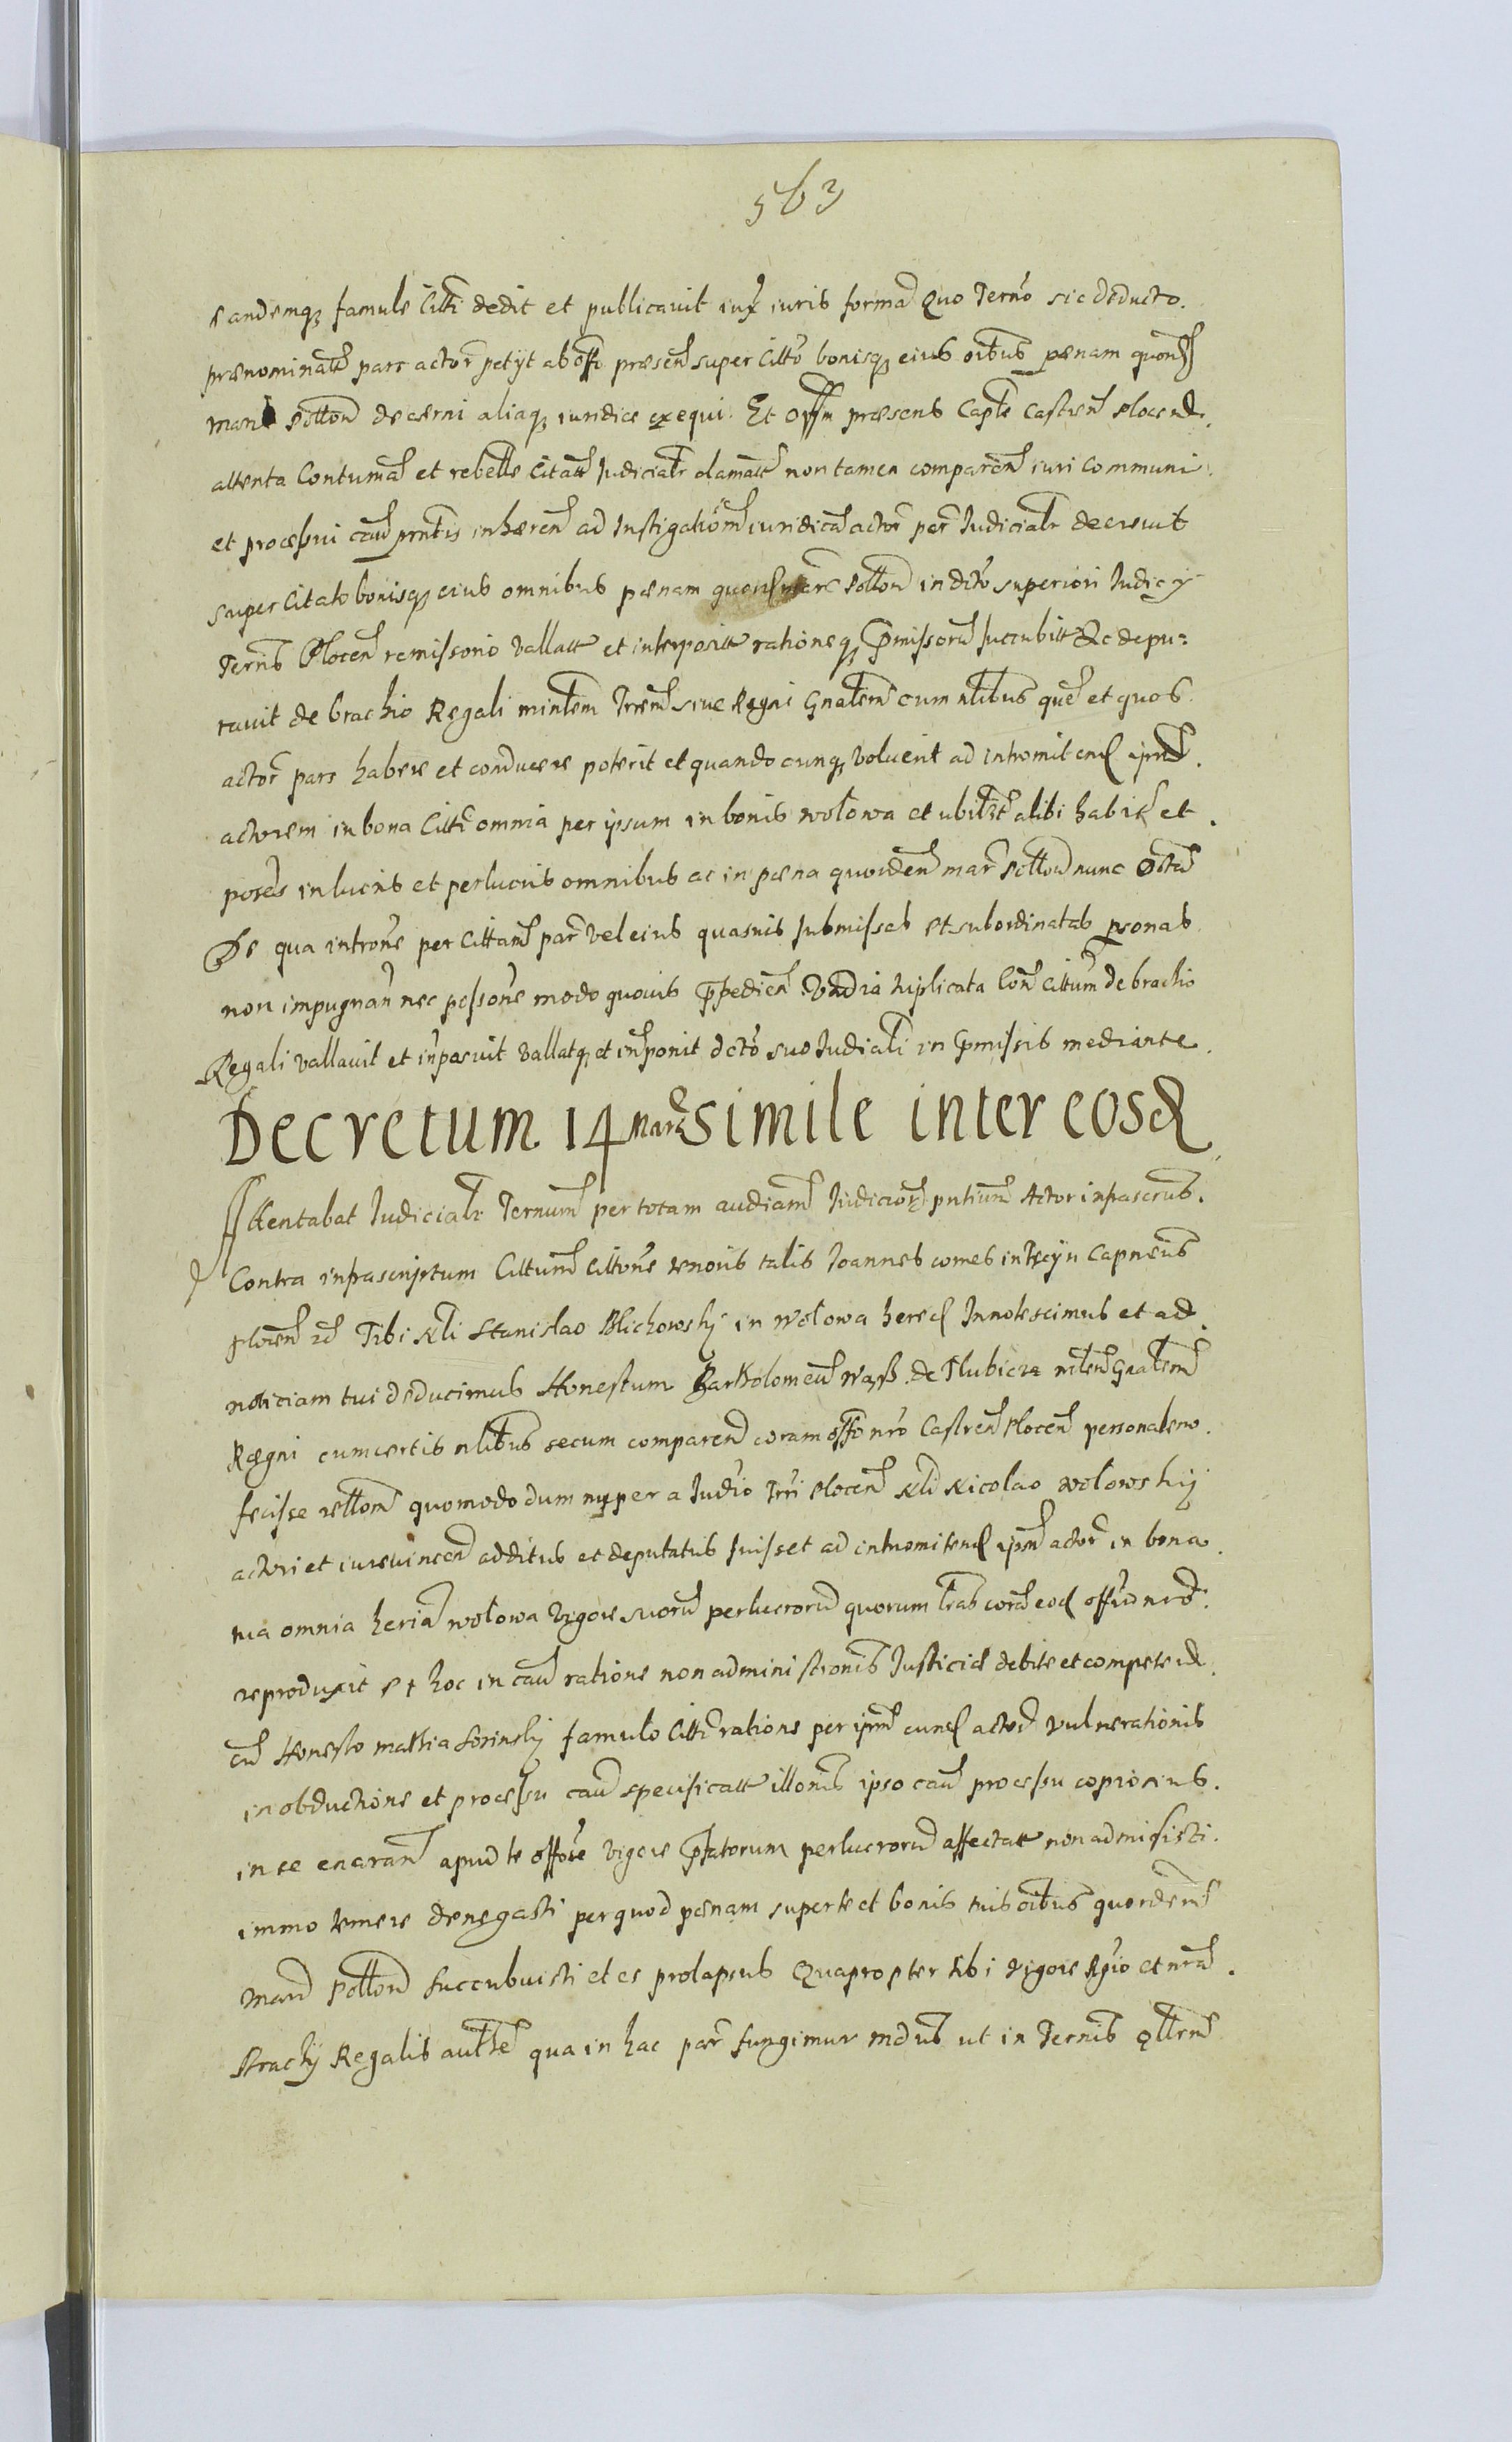 563
eandemq famule Citti dedit et publicavit iux iuris formā Quo Terno sic deducto.
prænominatæ pars actor petyt ab offo præsen super Citto bonisq eius oibus pænam quon
marc Pollon decærni aliaq iuridice exequi. Et Offm præsens Capte Castren Plocen.
attenta Contuma et rebelle Citatt Judicialr clamatt non tamen comparen iuri Communi
et processui cau pntis inhæren ad Instigationem iuridica actor par Judicialr decrevit
super Citato bonisq eius omnibus pænam quon marc Pollon in dcto superiori Judicy
Ternis Plocen remissorio Vallatt et interpositt rationeq pmissorū succubitt Ac depu=
tavit de brachio Regali mintem Trēm sive Regni Gnalem cum nlibus que et quos
actor pars habere et conducere poterit et quando cunq voluerit ad intromitend ipm
actorem in bona Citti omnia per ipsum in bonis wołowa et ubilzt alibi habit et
posses in lucris et perlucris omnibus ac in pæna quorden mar Pollon nunc dcta
De qua introne per Cittam par vel eius quasvis submissas et subordinatas psonas
non impugnan nec possone modo quovis ppedien Vadia triplicata Con Cittum de brachio
Regali vallavit et inposuit vallatq et imponit dcto suo Judiali in pmissis mediante
Decretum 14 Mar simile inter eosd
Attentabat Judicialr Ternum per totam audiam Judicior pntium Actor infrascrus.
Contra infrascriptum Cittum Cittone tenoris talis Joannes comes in Tęczyn Capneus
Plocen rd Tibi Nli Stanislao Blichowsky in Wołowa hered Innotescimus et ad
noticiam tui deducimus Honestum Bartholomeu Wąss de Hlubicze mlem Gnalem
Regni cum certis nlibus secum comparen coram offo nro Castren Plocen personalr
fecisse rellom quomodo dum nuper a Judio Trri Plocen Nli Nicolao Wołowsky
actori et iurevincen additus et deputatus fuisset ad intromitend ipm actor in bona
tua omnia heria wołowa vigore suorū perlucrorū quorum lras corā eod offo nro
reproduxit Et hoc in cau ratione non administronis Justiciæ debite et competen
cū Honesto Mathia Sosinsky famulo Citti ratione per ipm eund actor vulnerationis
in obductione et processu cau specificatt illonis ipso cau processu copiosius.
in se enaran apud te offore vigore pfatorum perlucrorū affectatt non admisisti.
immo temere denegasti per quod pænam super te et bonis tuis oibus quordem
Marc Pollon Succubuisti et es prolapsus Quapropter tibi vigore Rgio et nra
Brachy Regalis autte qua in hac par fungimur mdus ut in Ternis